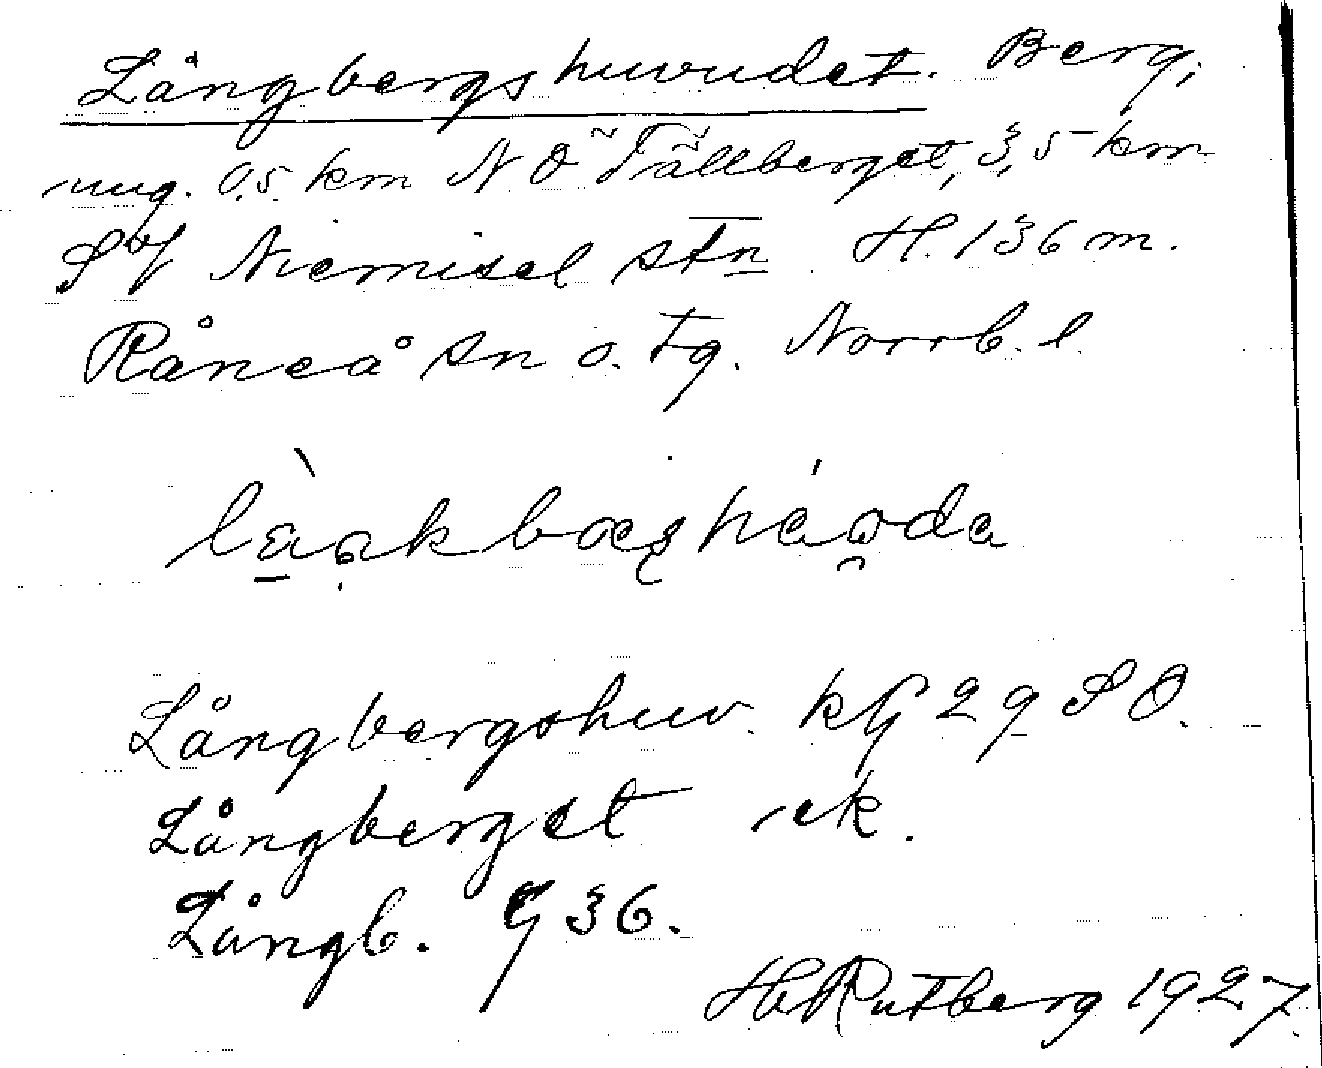 Långbergshuvudet. Berg,
ung. 0,5 km NO Tällberget, 3,5 km
SV Niemisel stn. H. 136 m.
Råneå sn o. tg. Norrb. l.
Långbergshuv. kG 29 SO.
Långberget ek.
Långb. G 36.
Hb Rutberg 1927.